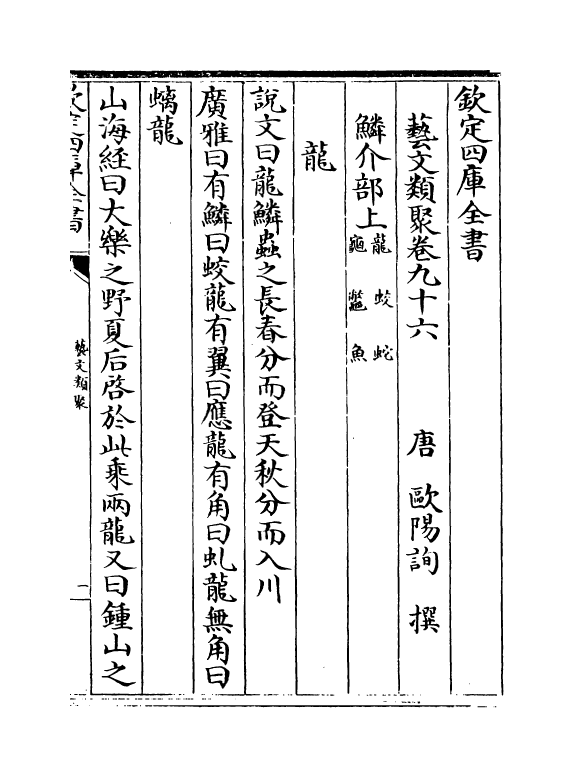 欽定四庫全書
藝文類聚卷九十六　唐　歐陽詢　撰
鱗介部上龍　蛟　蛇
龜　鼈　魚
龍
說文曰龍鱗蟲之長春分而登天秋分而入川
廣雅曰有鱗曰蛟龍有翼曰應龍有角曰虬龍無角曰
螭龍
山海經曰大樂之野夏后啓於此乘兩龍又曰鍾山之
欽定四庫全書
藝文類聚
一